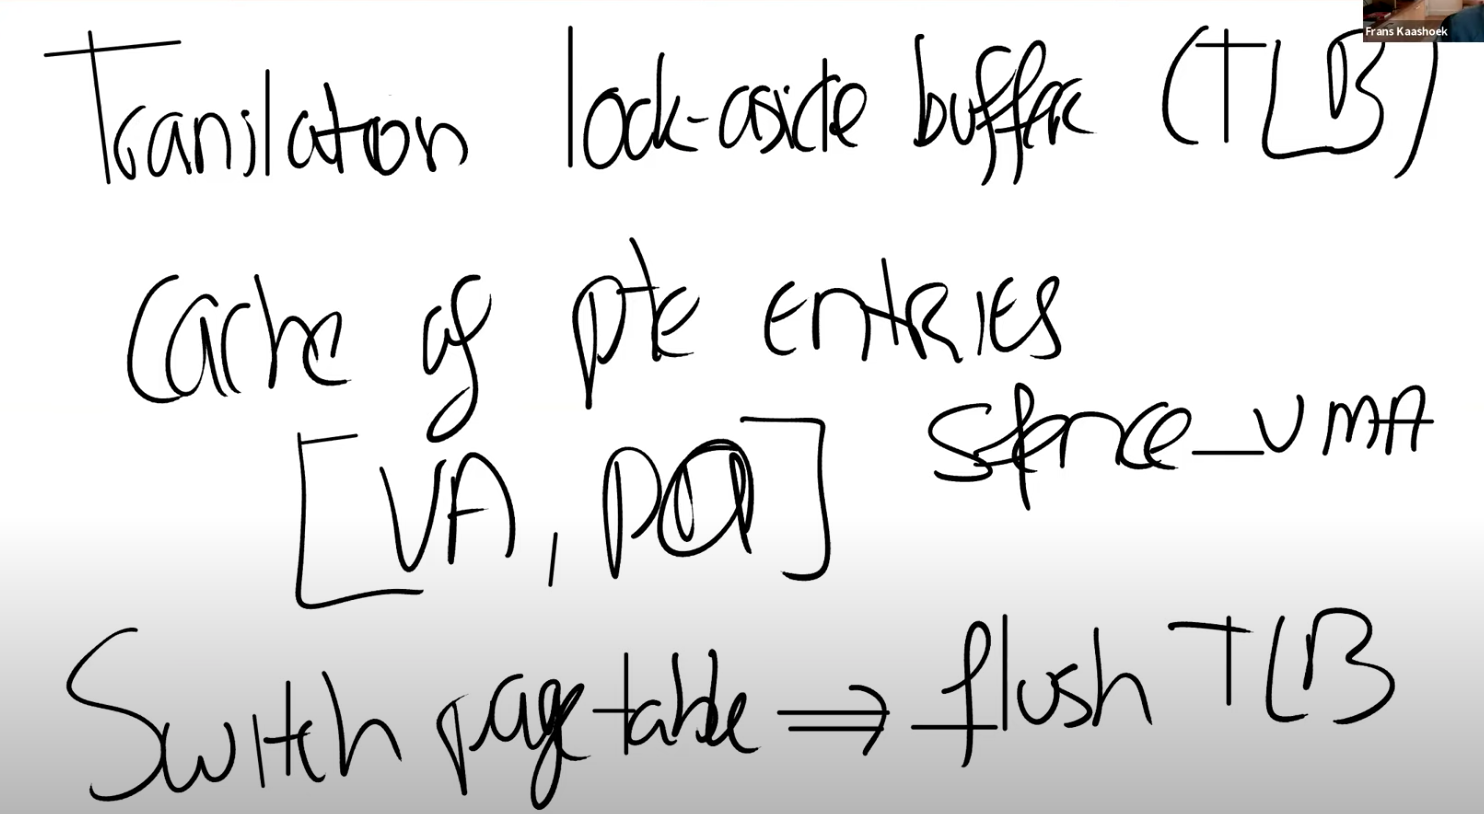 Frans Kaashoek
Translation look-aside buffer (TLB)
Cache of pte entries
[VA, PA]
sfence_VMA
Switch page table ⇒ flush TLB